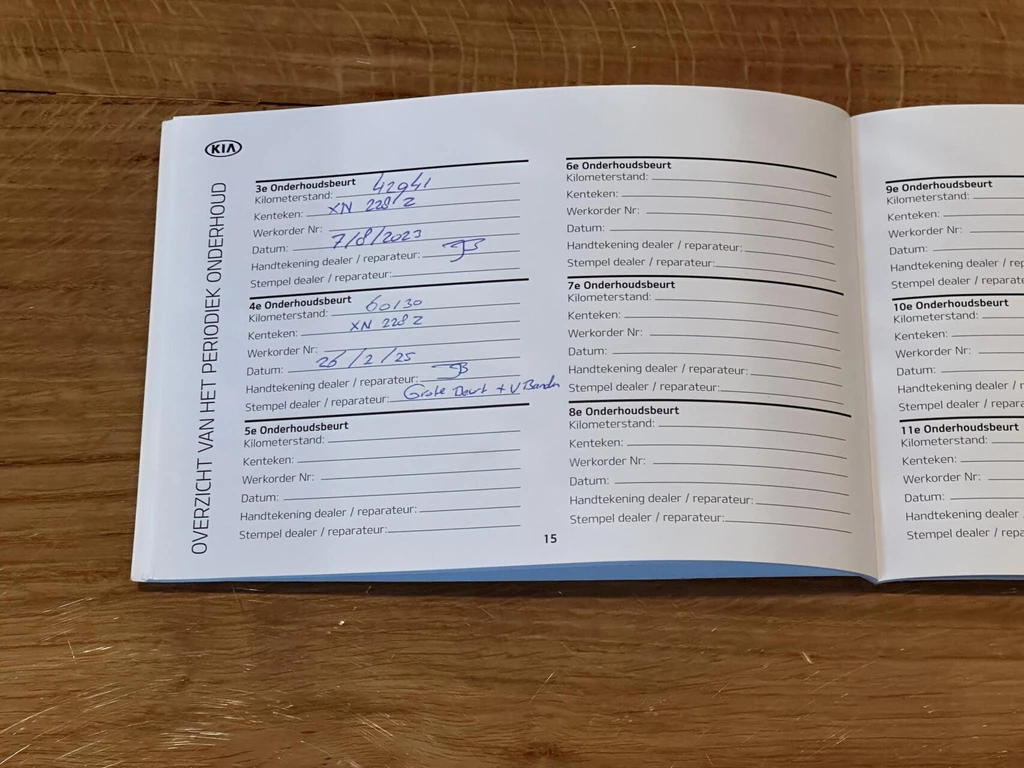 KIA
OVERZICHT VAN HET PERIODIEK ONDERHOUD
3e Onderhoudsbeurt
Kilometerstand: 42941
Kenteken: XN 228 Z
Werkorder Nr:
Datum: 7/8/2023
Handtekening dealer / reparateur:
Stempel dealer / reparateur:
4e Onderhoudsbeurt
Kilometerstand: 60130
Kenteken: XN 228 Z
Werkorder Nr:
Datum: 26/2/25
Handtekening dealer / reparateur:
Stempel dealer / reparateur: Grote Beurt + V Banden
5e Onderhoudsbeurt
Kilometerstand:
Kenteken:
Werkorder Nr:
Datum:
Handtekening dealer / reparateur:
Stempel dealer / reparateur:
6e Onderhoudsbeurt
Kilometerstand:
Kenteken:
Werkorder Nr:
Datum:
Handtekening dealer / reparateur:
Stempel dealer / reparateur:
7e Onderhoudsbeurt
Kilometerstand:
Kenteken:
Werkorder Nr:
Datum:
Handtekening dealer / reparateur:
Stempel dealer / reparateur:
8e Onderhoudsbeurt
Kilometerstand:
Kenteken:
Werkorder Nr:
Datum:
Handtekening dealer / reparateur:
Stempel dealer / reparateur:
15
9e Onderhoudsbeurt
Kilometerstand:
Kenteken:
Werkorder Nr:
Datum:
Handtekening dealer /
Stempel dealer / reparate
10e Onderhoudsbeurt
Kilometerstand:
Kenteken:
Werkorder Nr:
Datum:
Handtekening dealer / r
Stempel dealer / repara
11e Onderhoudsbeurt
Kilometerstand:
Kenteken:
Werkorder Nr:
Datum:
Handtekening dealer
Stempel dealer / repa